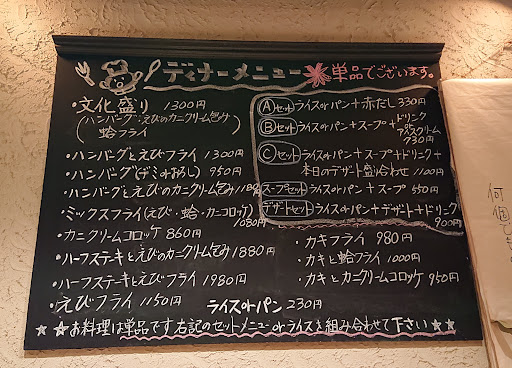 ディナーメニュー 単品でございます。
・文化盛り 1300円
(ハンバーグ・えびのカニクリーム包み
蛤フライ
・ハンバーグとえびフライ 1300円
・ハンバーグ(デミorおろし) 950円
・ハンバーグとえびのカニクリーム包み
・ミックスフライ(えび・蛤・カニコロッケ)
1080円
・カニクリームコロッケ 860円
・ハーフステーキとえびのカニクリーム包み 1880円
・ハーフステーキとえびフライ 1980円
・えびフライ 1150円
ライスorパン 230円
Aセット ライスorパン+赤だし 330円
Bセット ライスorパン+スープ+ドリンク
orアイスクリーム
730円
Cセット ライスorパン+スープ+ドリンク+
本日のデザート盛り合わせ 1100円
スープセット ライスorパン+スープ 550円
デザートセット ライスorパン+デザート+ドリンク
900円
・カキフライ 980円
・カキと蛤フライ 1000円
・カキとカニクリームコロッケ 950円
★★お料理は単品です右記のセットメニューorライスを組み合わせて下さい★★
何個